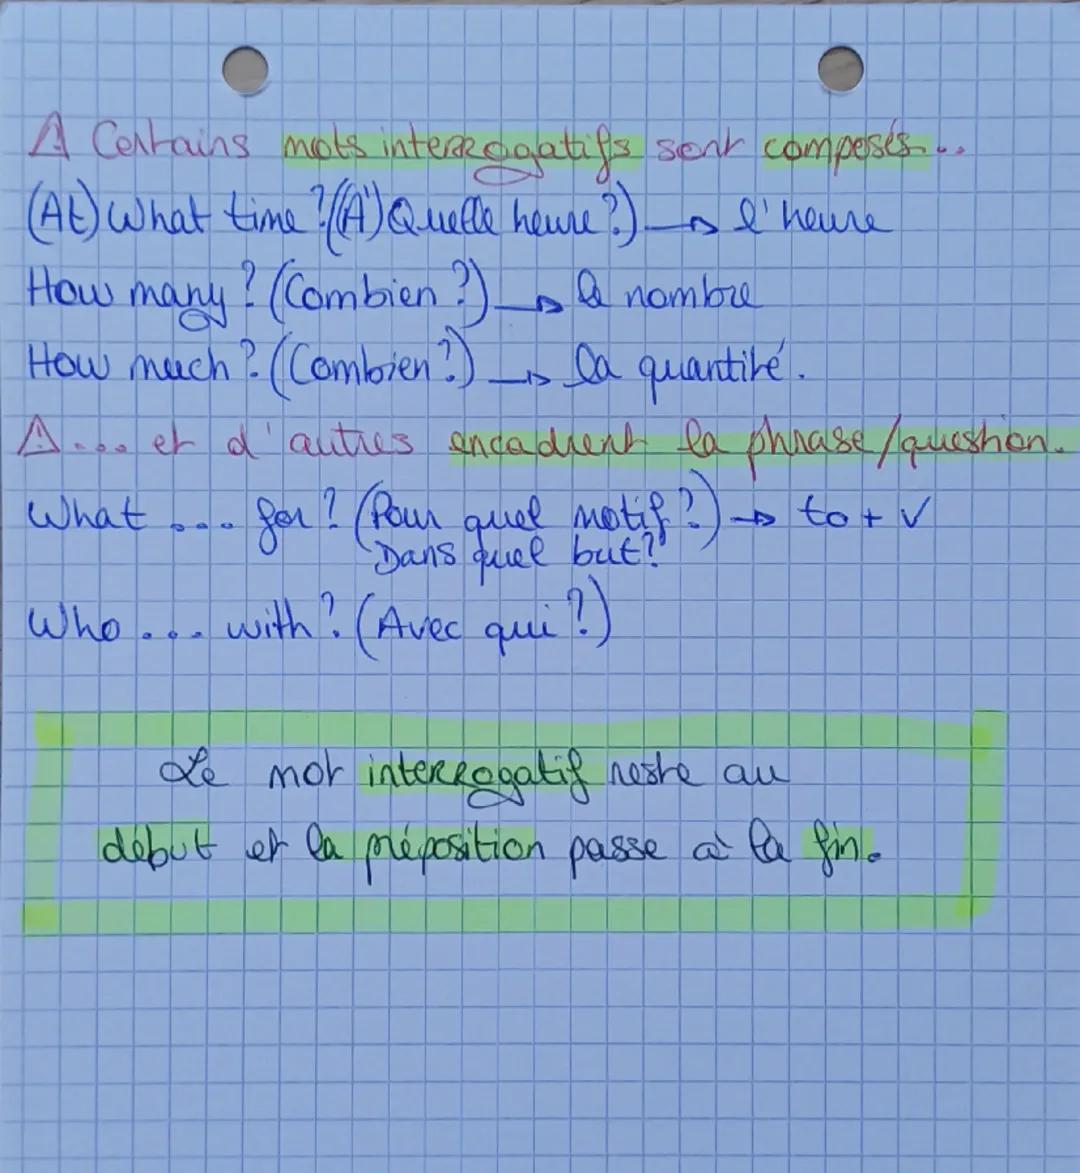 ⚠ Certains mots interrogatifs sont composés...
(At) What time ? ((A') Quelle heure ?) → l'heure
How many ? (Combien ?) → le nombre
How much ? (Combien ?) → la quantité.
⚠ ... et d'autres encadrent la phrase/question.
What ... for ? (Pour quel motif ?) → to + V
Dans quel but ?
Who ... with ? (Avec qui ?)
Le mot interrogatif reste au
début et la préposition passe à la fin.